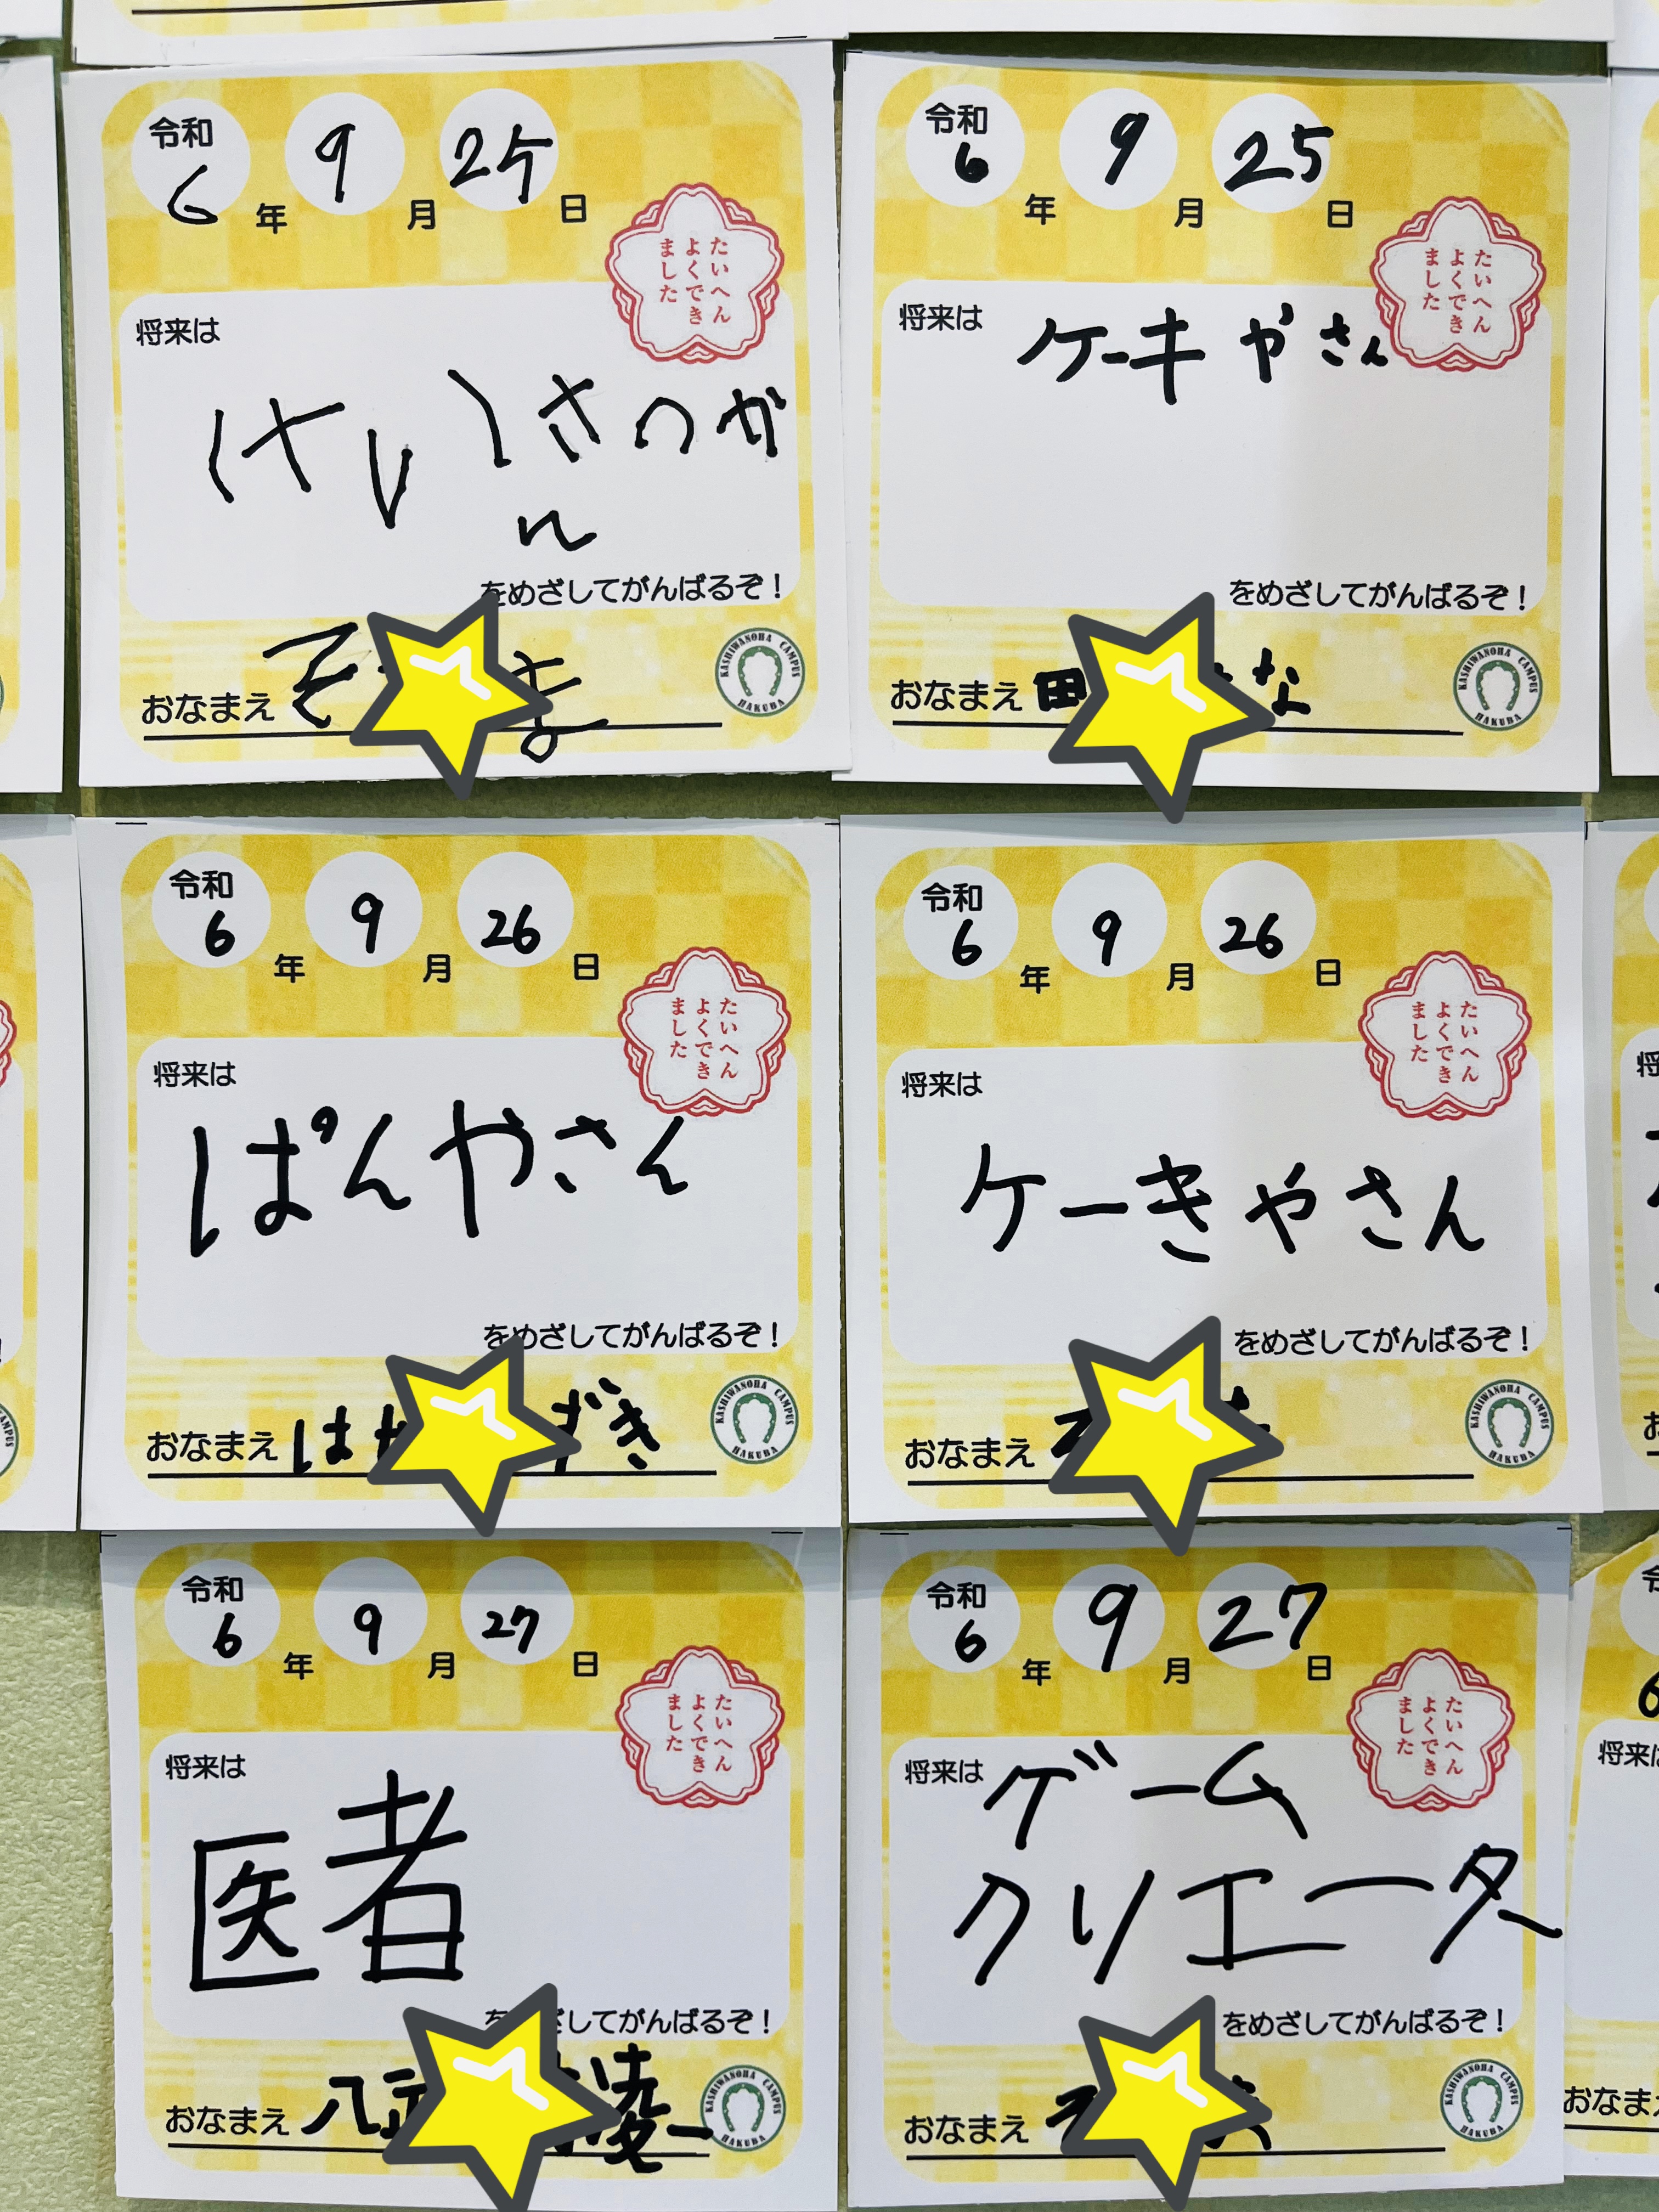 令和
6年9月25日
たいへん
よくでき
ました
将来は
けいさつか
ん
をめざしてがんばるぞ！
おなまえ
KASHIWANOHA CAMPUS
HAKUBA
令和
6年9月25日
たいへん
よくでき
ました
将来は
ケーキやさん
をめざしてがんばるぞ！
おなまえ 田 な
KASHIWANOHA CAMPUS
HAKUBA
令和
6年9月26日
たいへん
よくでき
ました
将来は
ぱんやさん
をめざしてがんばるぞ！
おなまえ は き
KASHIWANOHA CAMPUS
HAKUBA
令和
6年9月26日
たいへん
よくでき
ました
将来は
ケーきやさん
をめざしてがんばるぞ！
おなまえ
KASHIWANOHA CAMPUS
HAKUBA
令和
6年9月27日
たいへん
よくでき
ました
将来は
医者
をめざしてがんばるぞ！
おなまえ 八 凌一
KASHIWANOHA CAMPUS
HAKUBA
令和
6年9月27日
たいへん
よくでき
ました
将来は
ゲーム
クリエーター
をめざしてがんばるぞ！
おなまえ
KASHIWANOHA CAMPUS
HAKUBA